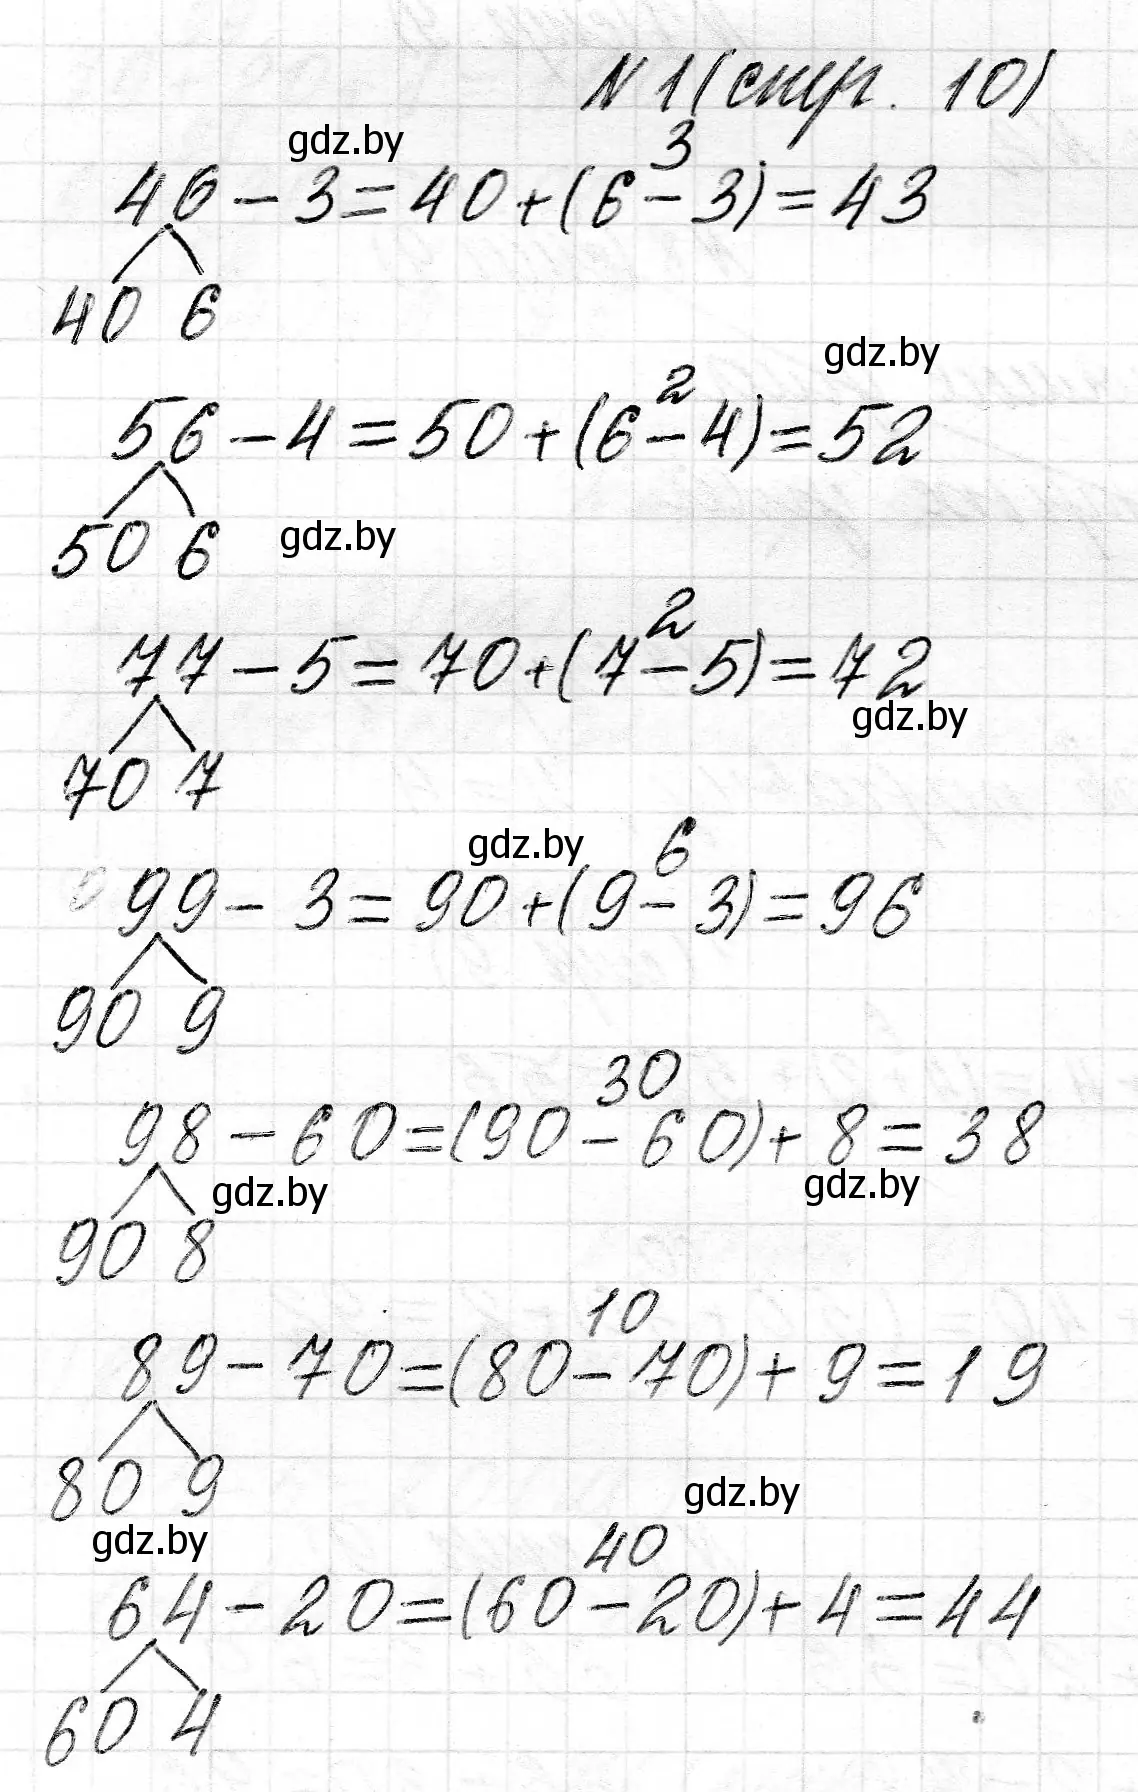 N 1 (стр. 10)
gdz.by
3
46 - 3 = 40 + (6 - 3) = 43
40 6
gdz.by
2
56 - 4 = 50 + (6 - 4) = 52
50 6
gdz.by
2
77 - 5 = 70 + (7 - 5) = 72
gdz.by
70 7
gdz.by
6
99 - 3 = 90 + (9 - 3) = 96
90 9
30
98 - 60 = (90 - 60) + 8 = 38
gdz.by
gdz.by
90 8
10
89 - 70 = (80 - 70) + 9 = 19
80 9
gdz.by
gdz.by
40
64 - 20 = (60 - 20) + 4 = 44
60 4